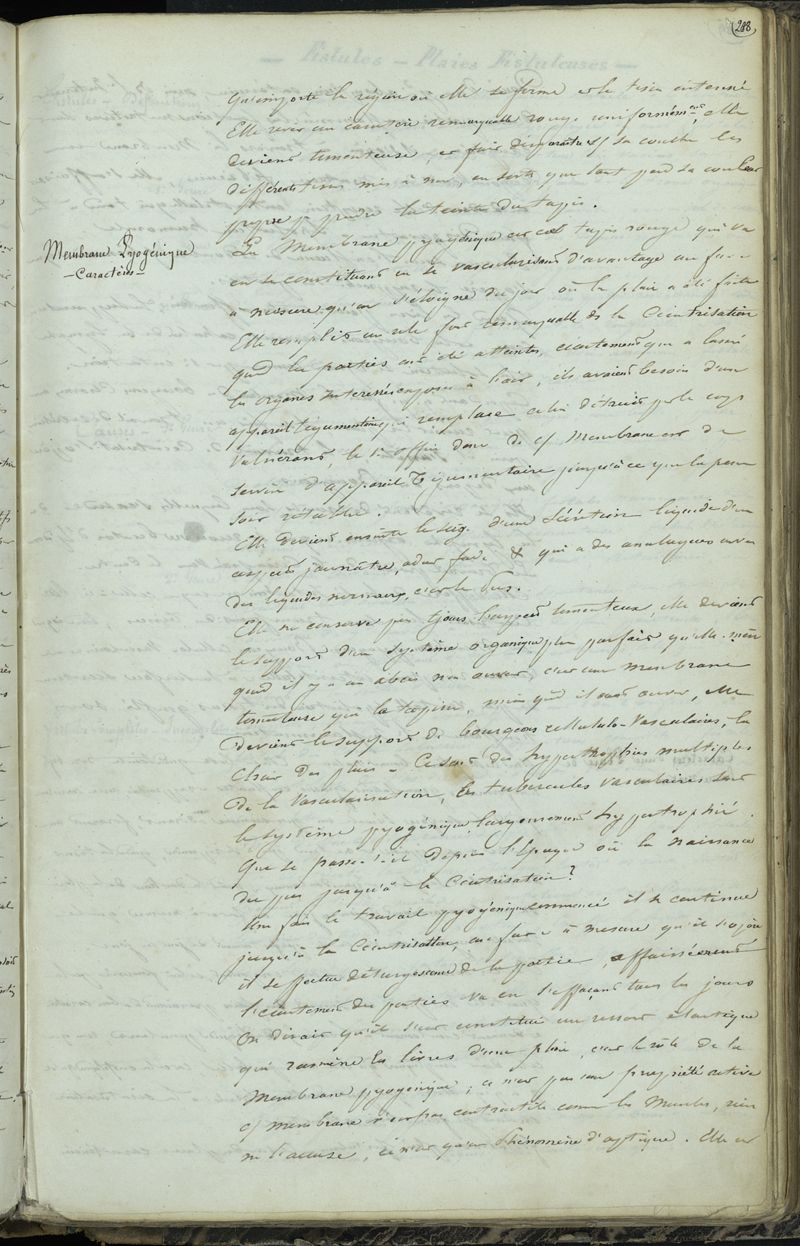 288
— Fistules — Plaies Fistuleuses —
qu'importe la région où elle se forme et le tissu intéressé
Elle revêt un caractère remarquable rouge uniformément, elle
devient tomenteuse, et fait disparaître sa couche les
différents tissus mis à nu, en sorte que tout perd sa couleur
propre pr prendre la teinte du tapis.
Membrane Pyogénique
— Caractères —
La Membrane pyogénique est cet tapis rouge qui va
en se constituant en se vascularisant d'avantage au fur
à mesure qu'on s'éloigne du jour où la plaie a été faite
Elle remplit un rôle fort remarquable ds la Cicatrisation
quand les parties ont été atteintes, écartement qui a laissé
les organes intéressés exposés à l'air, ils avaient besoin d'un
appareil tégumentaire qui remplace celui détruit par le corps
Vulnérant, le 1er office donc de c/ Membrane est de
servir d'appareil Tégumentaire jusqu'à ce que la peau
soit rétablie.
Elle devient ensuite le siège d'une Sécrétion liquide d'un
aspect jaunâtre, odeur fade & qui a des analogues avec
des liquides normaux, c'est le Pus.
Elle ne conserve pas tjours l'aspect tomenteux, elle devient
le support d'un système organique plus parfait qu'elle-même
quand il y a un abcès non ouvert, c'est une membrane
tomenteuse qui la tapisse, mais qd il est ouvert, elle
devient le support de bourgeons cellulo-Vasculaires, la
Chair des plaies — Ce sont des hypertrophies multiples
de la Vascularisation, les tubercules vasculaires sont
le système pyogénique largement hypertrophié.
Que se passe-t-il depuis l'époque où la naissance
du pus jusqu'à la Cicatrisation?
Une fois le travail pyogénique commencé il se continue
jusqu'à la Cicatrisation, au fur & à mesure qu'il s'opère
il s'effectue déturgescence de la partie, affaissement
l'écartement des parties va en s'effaçant tous les jours
On dirait qu'il s'est constitué un ressort élastique
qui ramène les lèvres d'une plaie, c'est le rôle de la
Membrane pyogénique; ce n'est pas une propriété active
c/ membrane n'est pas contractile comme les Muscles, rien
ne l'accuse, ce n'est qu'un Phénomène d'optique. Elle est